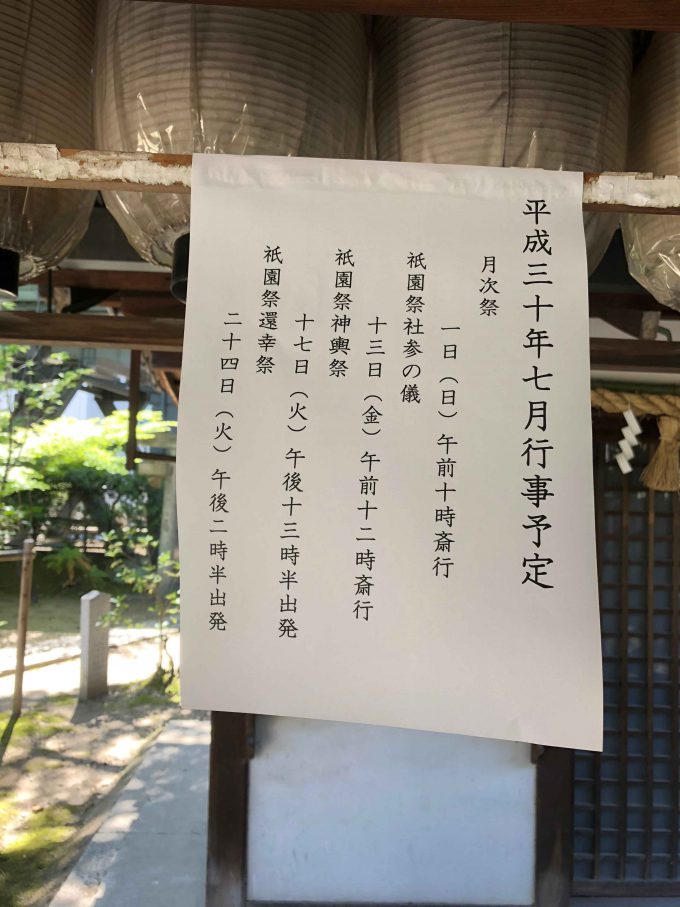 平成三十年七月行事予定
月次祭
一日（日）午前十時斎行
祇園祭社参の儀
十三日（金）午前十二時斎行
祇園祭神輿祭
十七日（火）午後十三時半出発
祇園祭還幸祭
二十四日（火）午後二時半出発